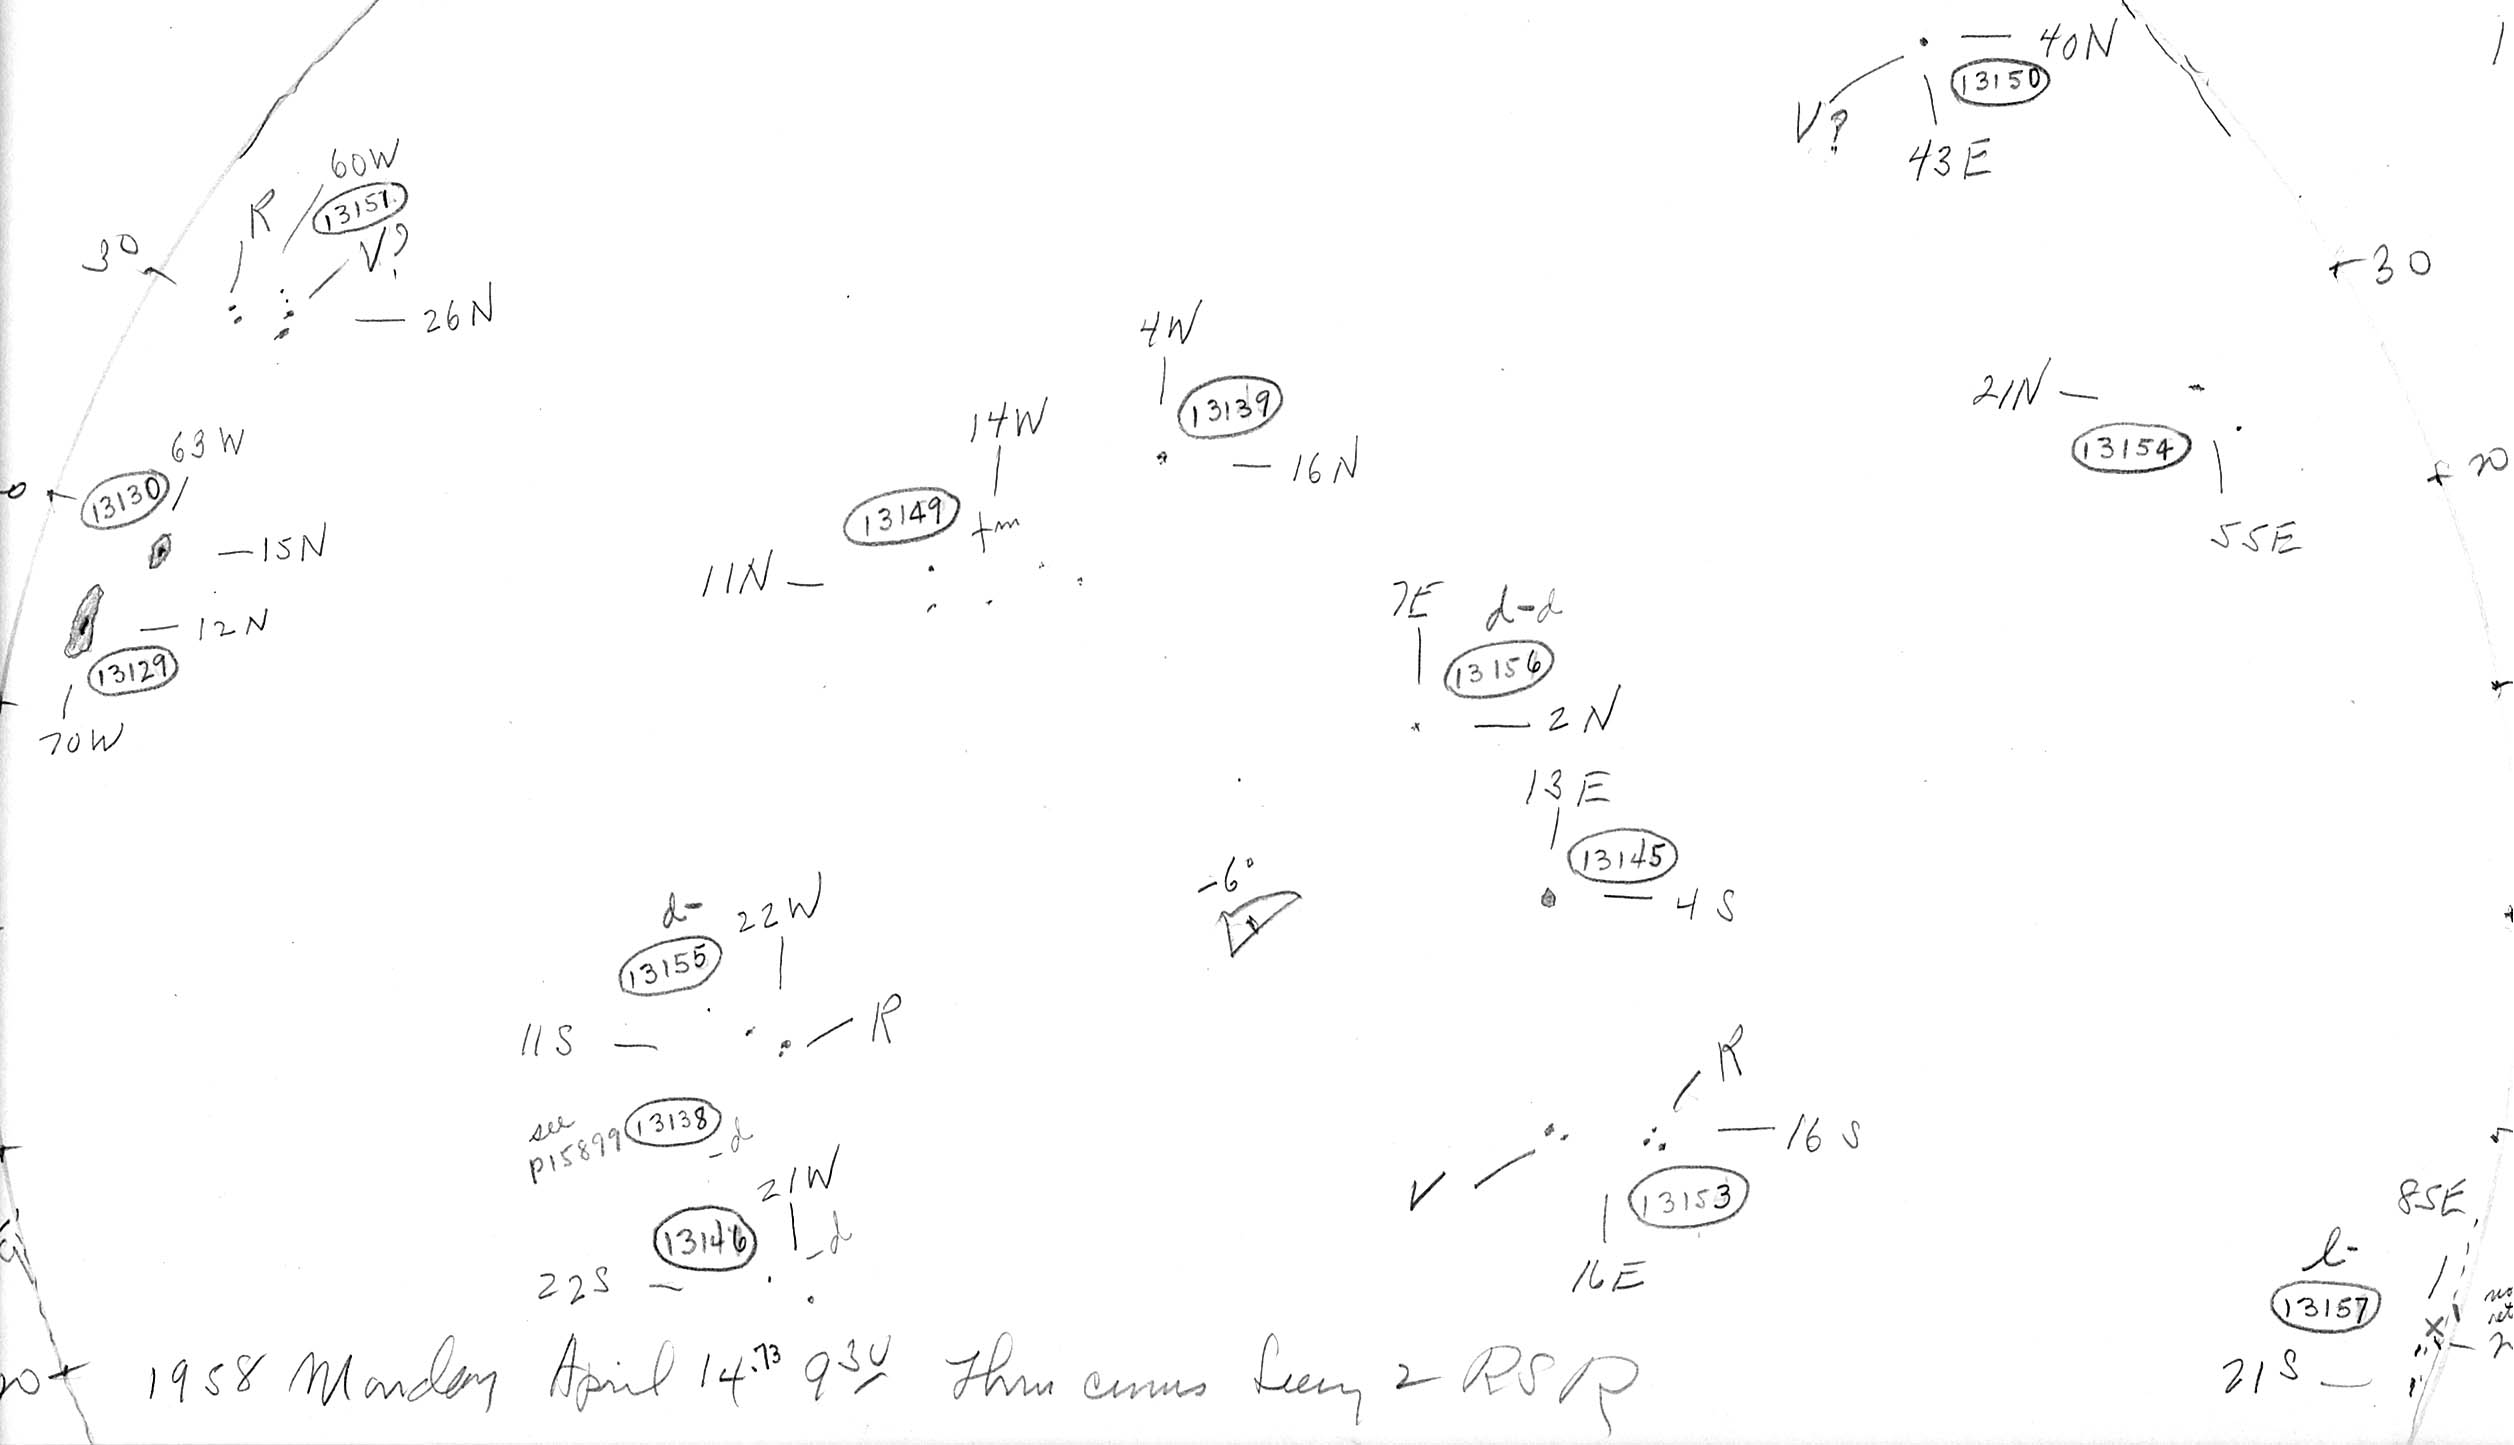 40N
13150
V?
43E
60W
R
13151
V?
30
26N
30
4W
13139
16N
21N
13154
55E
14W
13149
+m
11N
63W
13130
15N
20
12N
13129
70W
7E
d-d
13156
2N
13E
13145
4S
-6°
d-
22W
13155
11S
R
see
p15899
13138
-d
21W
13146
-d
22S
R
16S
V
13153
16E
85E
l-
13157
21S
1958 Monday April 14.73 9 30 Thru cirrus Seeing 2 RSR